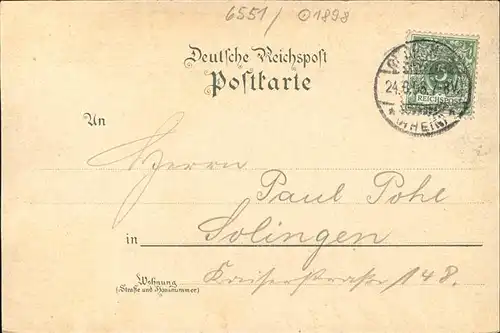 6551/ ⊙1898
Deutsche Reichspost
Postkarte
24.8.98. 7-8V.
5
REICHSPOST
* (RHEIN) *
An
Herrn
Paul Pohl
in Solingen
Wohnung
(Straße und Hausnummer)
Kaiserstraße 148.